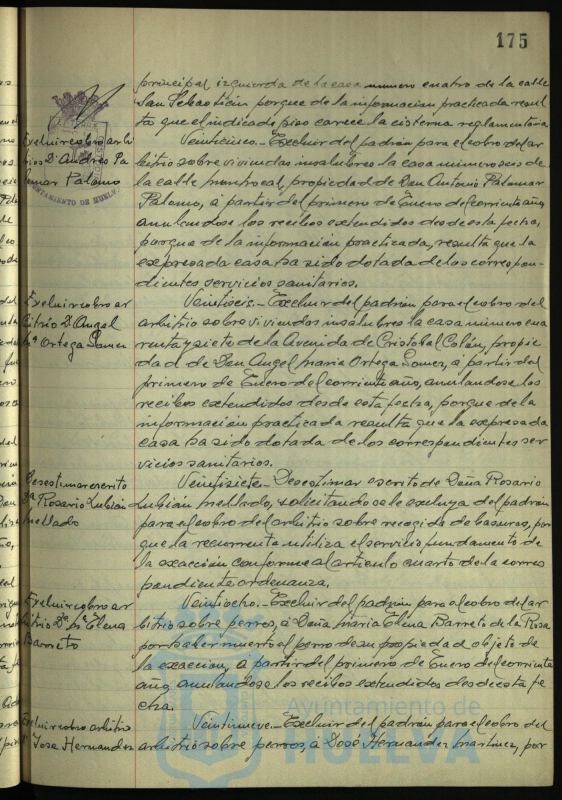 175
principal izquierda de la casa numero cuatro de la calle
San Sebastian porque de la informacion practicada resul
ta que el indicado piso carece la cisterna reglamentaria
Excluir cobro arbi
trios D. Andres Pa
lomar Palomo
AYUNTAMIENTO DE HUELVA
Veinticinco.- Excluir del padrón para el cobro del ar
bitrio sobre viviendas insalubres la casa numero seis de
la calle propiedad de Don Antonio Palomar
Palomo, a partir del primero de Enero del corriente año,
anulandose los recibos extendidos desde esta fecha,
porque de la informacion practicada, resulta que la
expresada casa ha sido dotada de los correspon-
dientes servicios sanitarios.
Excluir cobro ar
bitrio D. Angel
Mª Ortega Gomez
Veintiseis.- Excluir del padrón para el cobro del
arbitrio sobre viviendas insalubres la casa numero cua
renta y siete de la Avenida de Cristobal Colón, propie
dad de Don Angel Maria Ortega Gomez, a partir del
primero de Enero del corriente año, anulandose los
recibos extendidos desde esta fecha, porque de la
informacion practicada resulta que la expresada
casa ha sido dotada de los correspondientes ser
vicios sanitarios.
Desestimar escrito
Dª Rosario Lubián
Mellado
Veintisiete.- Desestimar escrito de Doña Rosario
Lubián Mellado, solicitando se le excluya del padrón
para el cobro del arbitrio sobre recogida de basuras, por
que la recurrente utiliza el servicio, fundamento de
la exacción conforme al articulo cuarto de la corres
pondiente ordenanza.
Excluir cobro ar
bitrio Dª Mª Elena
Barreto
Veintiocho.- Excluir del padrón para el cobro del ar
bitrio sobre perros, á Doña Maria Elena Barreto de la Rosa
por haber muerto el perro de su propiedad objeto de
la exaccion, a partir del primero de Enero del corriente
año, anulandose los recibos extendidos desde esta fe
cha.
Excluir cobro arbitrio
D. Jose Hernandez
Veintinueve.- Excluir del padrón para el cobro del
arbitrio sobre perros, á José Hernandez Martinez, por
Ayuntamiento de
HUELVA